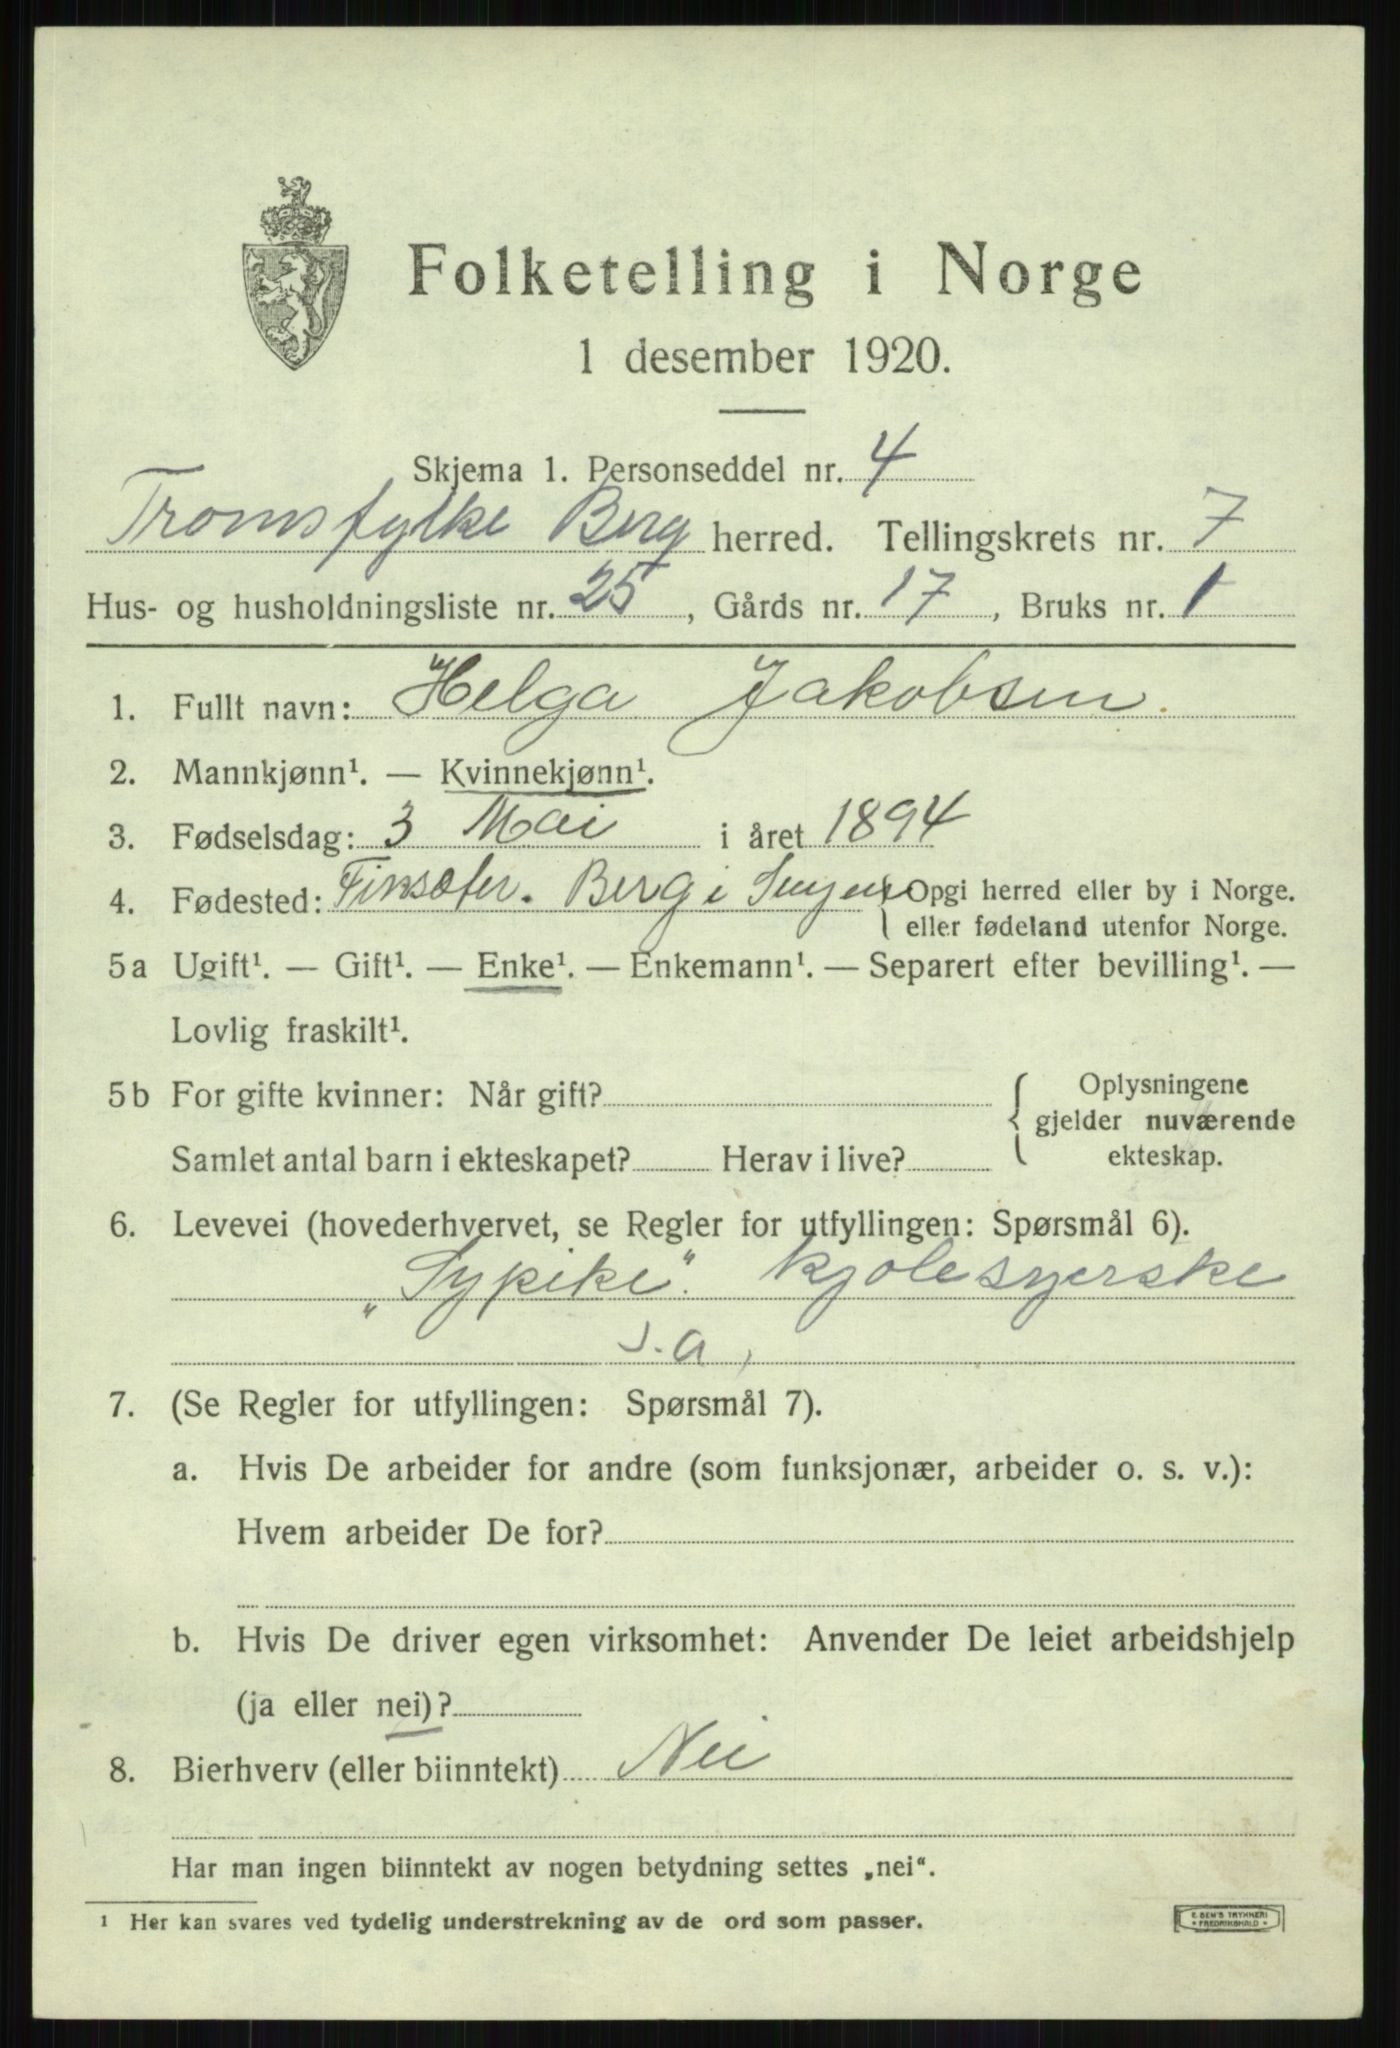 Folketelling i Norge
1 desember 1920.
Skjema 1. Personseddel nr. 4
Tromsfylke Berg herred. Tellingskrets nr. 7
Hus- og husholdningsliste nr. 25, Gårds nr. 17, Bruks nr. 1
1. Fullt navn: Helga Jakobsen.
2. Mannkjønn¹. — Kvinnekjønn¹.
3. Fødselsdag: 3 Mai i året 1894
4. Fødested: Finsæter. Berg i Senjen { Opgi herred eller by i Norge.
eller fødeland utenfor Norge.
5a Ugift¹. — Gift¹. — Enke¹. — Enkemann¹. — Separert efter bevilling¹. —
Lovlig fraskilt¹.
5b For gifte kvinner: Når gift? { Oplysningene
gjelder nuværende
Samlet antal barn i ekteskapet? Herav i live? ekteskap.
6. Levevei (hovederhvervet, se Regler for utfyllingen: Spørsmål 6).
„Sypike". kjolesyerske
s.a,
7. (Se Regler for utfyllingen: Spørsmål 7).
a. Hvis De arbeider for andre (som funksjonær, arbeider o. s. v.):
Hvem arbeider De for?
b. Hvis De driver egen virksomhet: Anvender De leiet arbeidshjelp
(ja eller nei)?
8. Bierhverv (eller biinntekt) Nei
Har man ingen biinntekt av nogen betydning settes „nei".
¹ Her kan svares ved tydelig understrekning av de ord som passer.
E. SEM'S TRYKKERI
* FREDRIKSHALD *